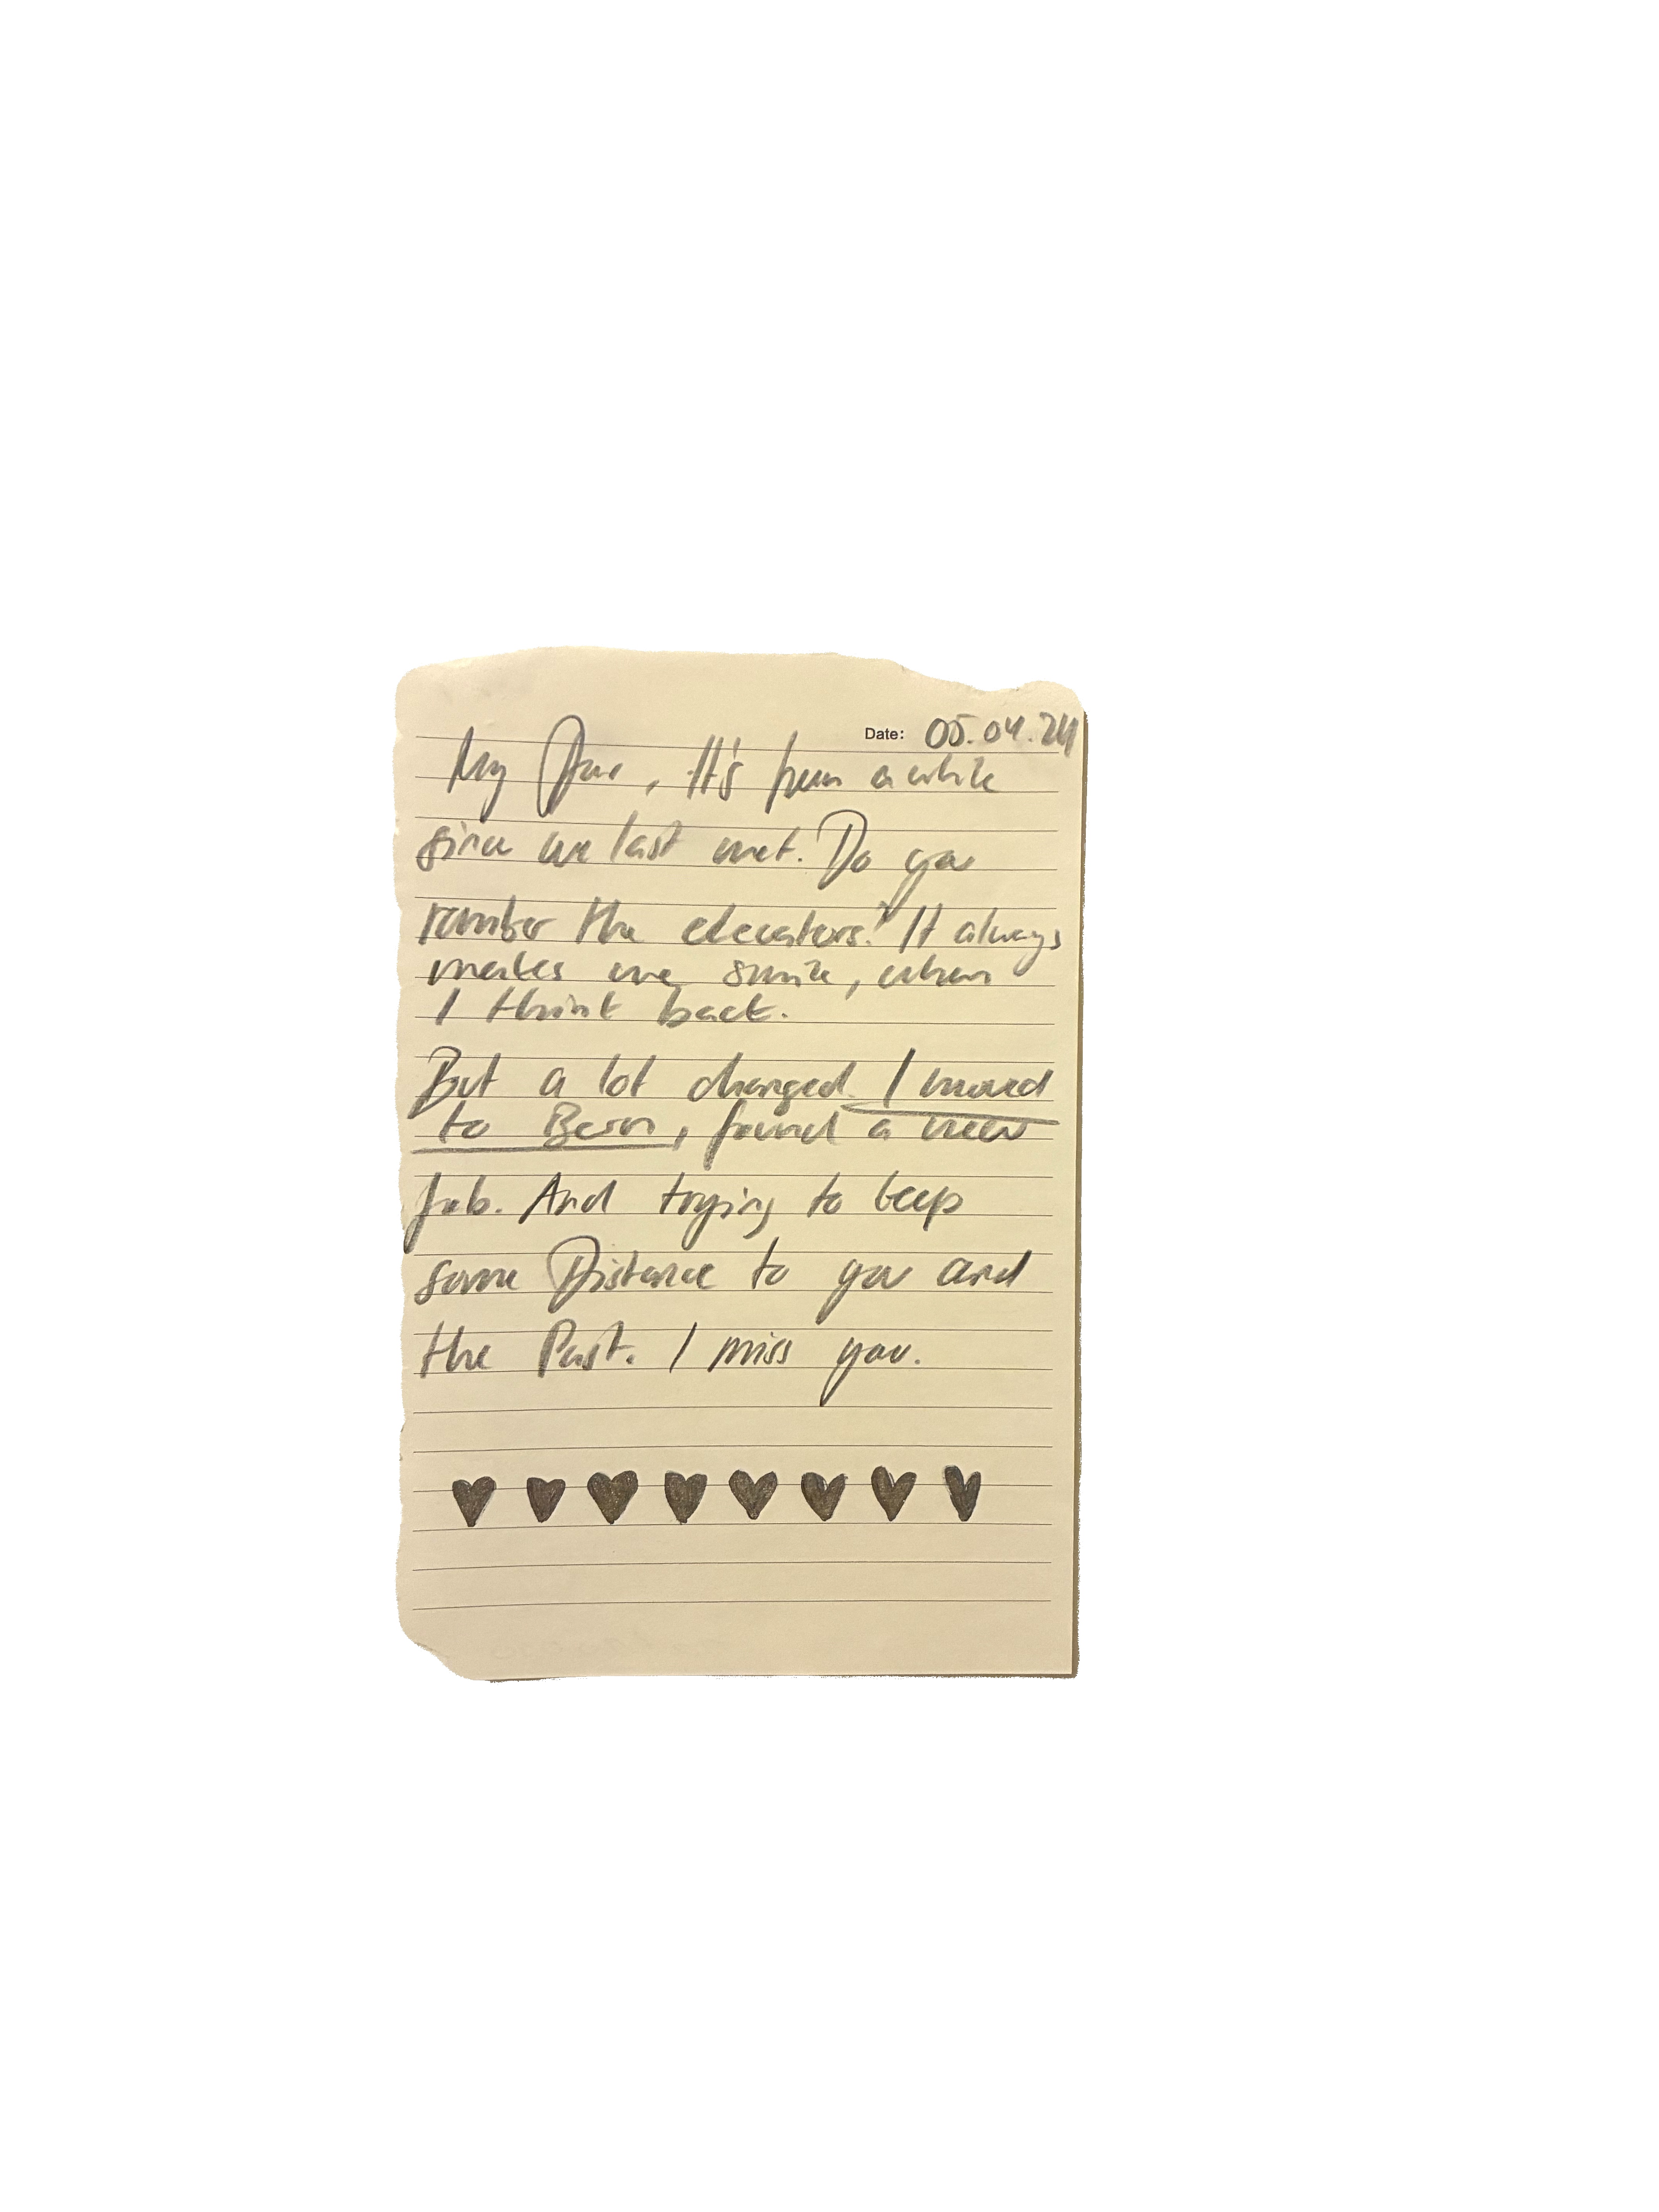 Date: 05.04.24
My Dear, It's been a while
since we last met. Do you
rember the elevators? It always
makes me smile, when
I think back.
But a lot changed. I moved
to Bern, found a new
Job. And trying to keep
some Distance to you and
the Past. I miss you.